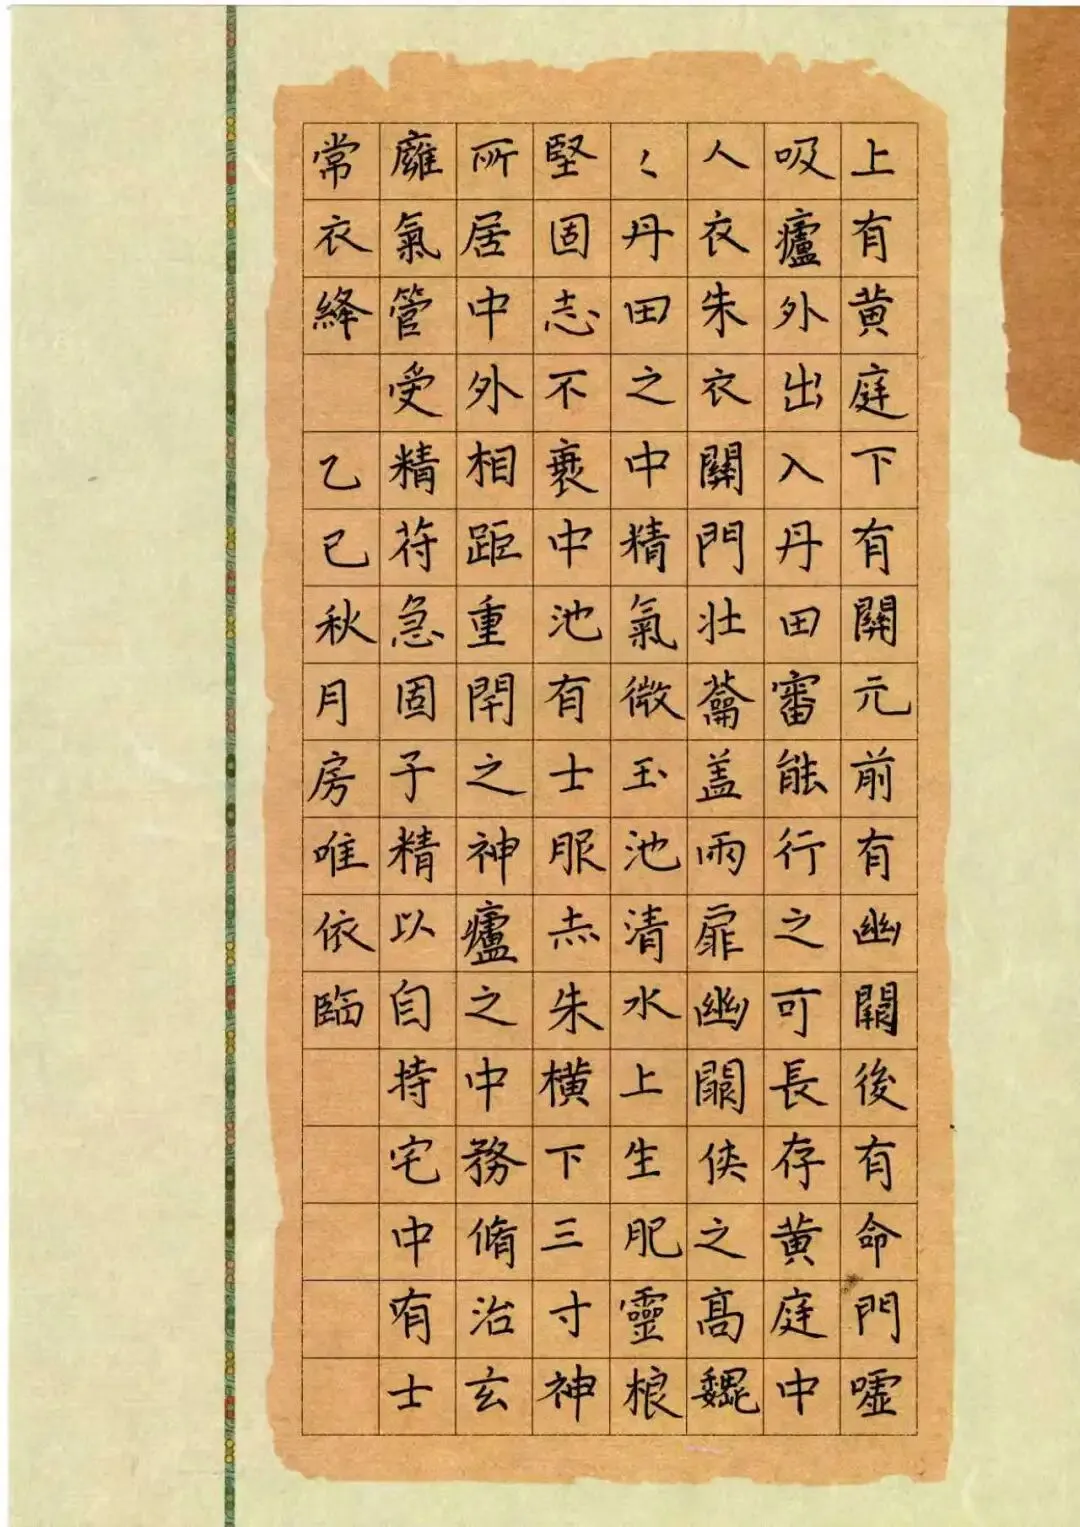 上有黄庭下有關元前有幽闕後有命門噓
吸廬外出入丹田審能行之可長存黄庭中
人衣朱衣關門壯蘥盖兩扉幽闕俠之高魏
〻丹田之中精氣微玉池清水上生肥靈根
堅固志不衰中池有士服赤朱橫下三寸神
所居中外相距重閇之神廬之中務脩治玄
廱氣管受精苻急固子精以自持宅中有士
常衣絳 乙巳秋月房唯依臨